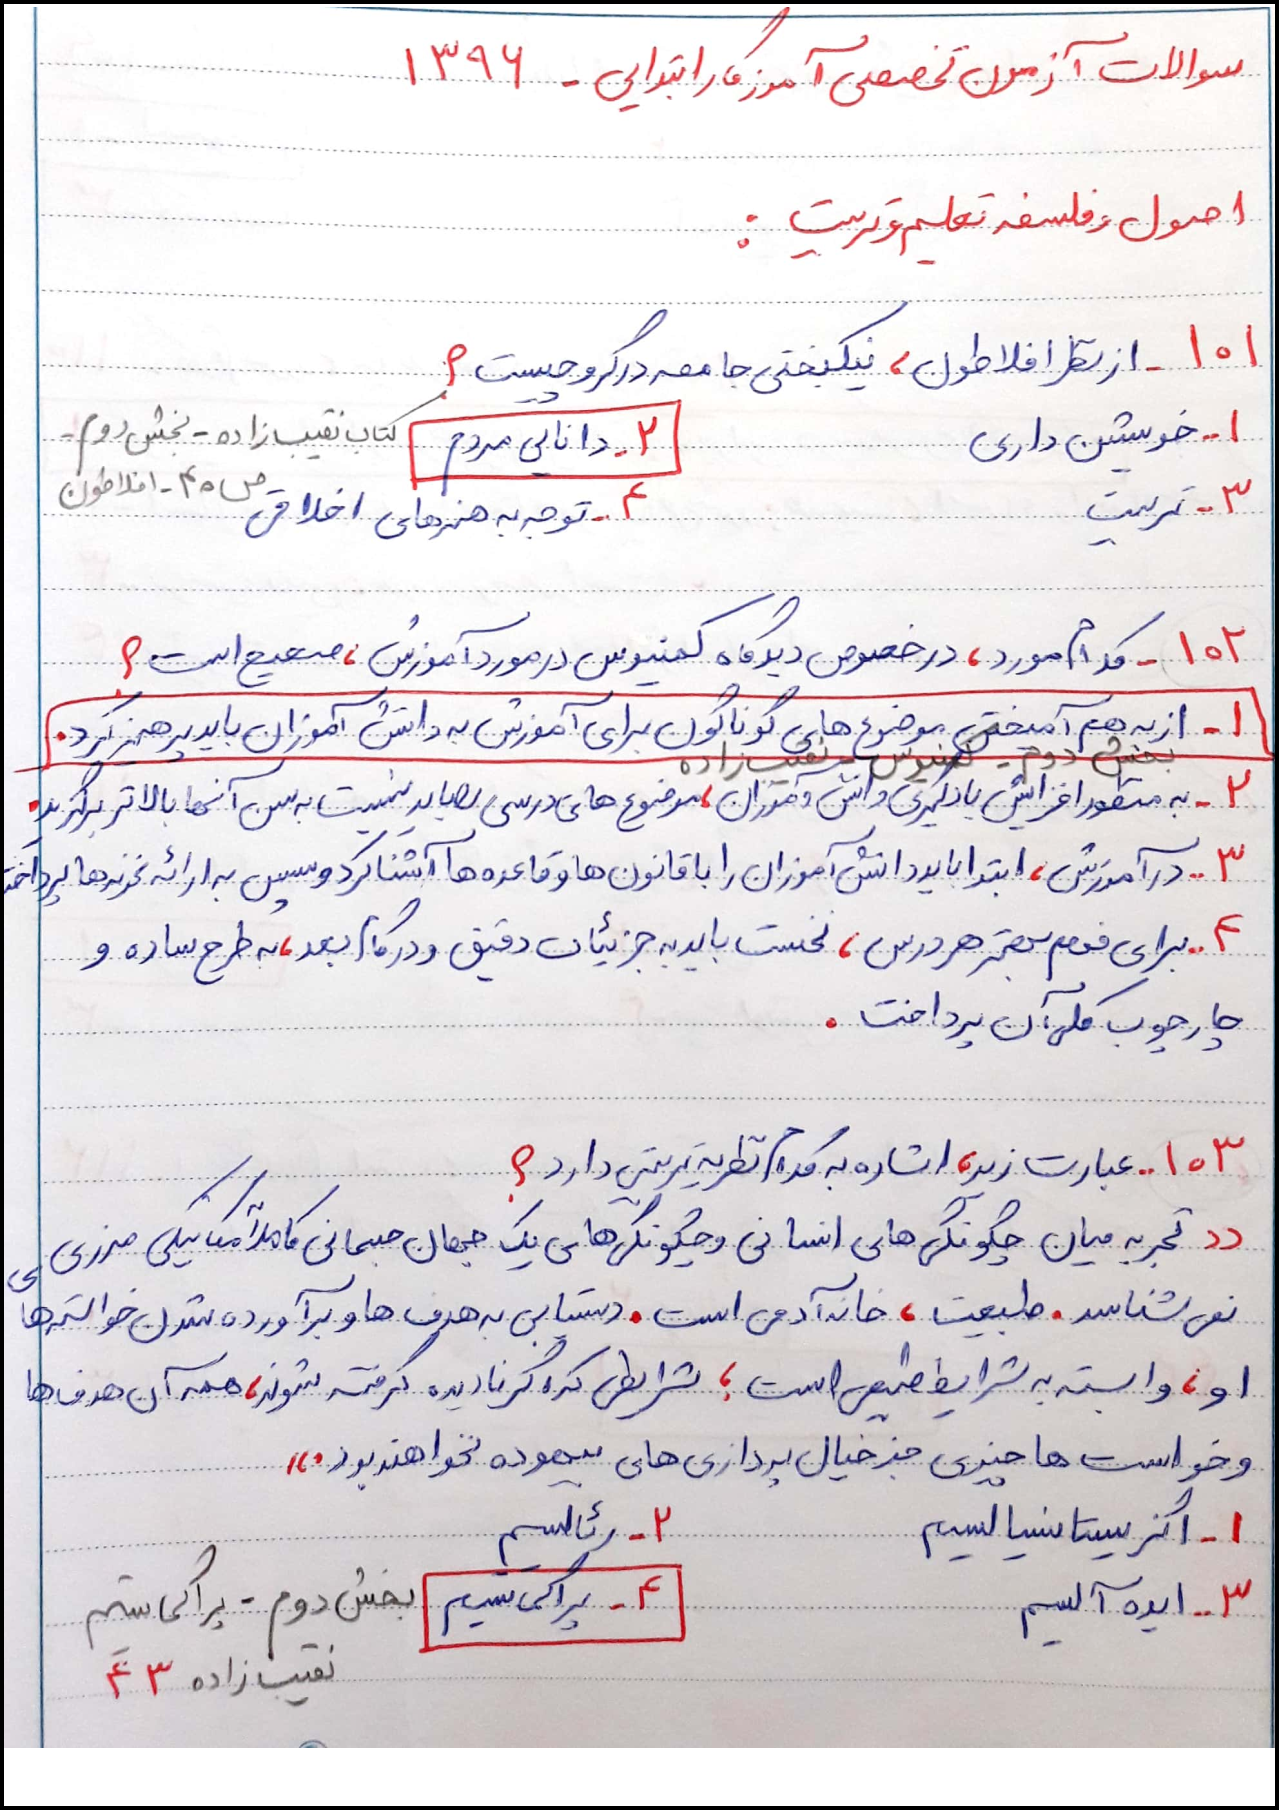 سوالات آزمون تخصصی آموزگار ابتدایی - ۱۳۹۶
اصول و فلسفه تعلیم و تربیت :
۱۰۱ - از نظر افلاطون، نیکبختی جامعه در گرو چیست ؟
۱- خویشتن داری ۲- دانایی مردم کتاب نقیب زاده - بخش دوم -
ص ۴۰ - افلاطون
۳- تربیت ۴- توجه به هنرهای اخلاقی
۱۰۲ - کدام مورد، در خصوص دیدگاه کمنیوس در مورد آموزش، صحیح است ؟
۱- از به هم آمیختن موضوع های گوناگون برای آموزش به دانش آموزان باید پرهیز کرد.
بخش دوم - کمنیوس - نقیب زاده
۲- به منظور افزایش یادگیری دانش آموزان، موضوع های درسی را باید نسبت به سن آنها بالاتر برگزید.
۳- در آموزش، ابتدا باید دانش آموزان را با قانون ها و قاعده ها آشنا کرد و سپس به ارائه نمونه ها پرداخت
۴- برای فهم بهتر هر درس، نخست باید به جزئیات دقیق و در گام بعد، به طرح ساده و
چارچوب کلی آن پرداخت .
۱۰۳ - عبارت زیر، اشاره به کدام نظریه تربیتی دارد ؟
«تجربه میان چگونگی های انسانی و چگونگی های یک جهان جسمانی کاملاً مکانیکی مرزی ی
نمی شناسد . طبیعت، خانه آدمی است . دستیابی به هدف ها و برآورده شدن خواسته ها
او، وابسته به شرایط طبیعی است ؛ شرایطی که اگر نادیده گرفته شوند، همه آن هدف ها
و خواست ها چیزی جز خیال پردازی های بیهوده نخواهند بود .»
۱- اگزیستانسیالیسم ۲- رئالیسم
۳- ایده آلیسم ۴- پراگماتیسم بخش دوم - پراگماتیسم
نقیب زاده ۴۳